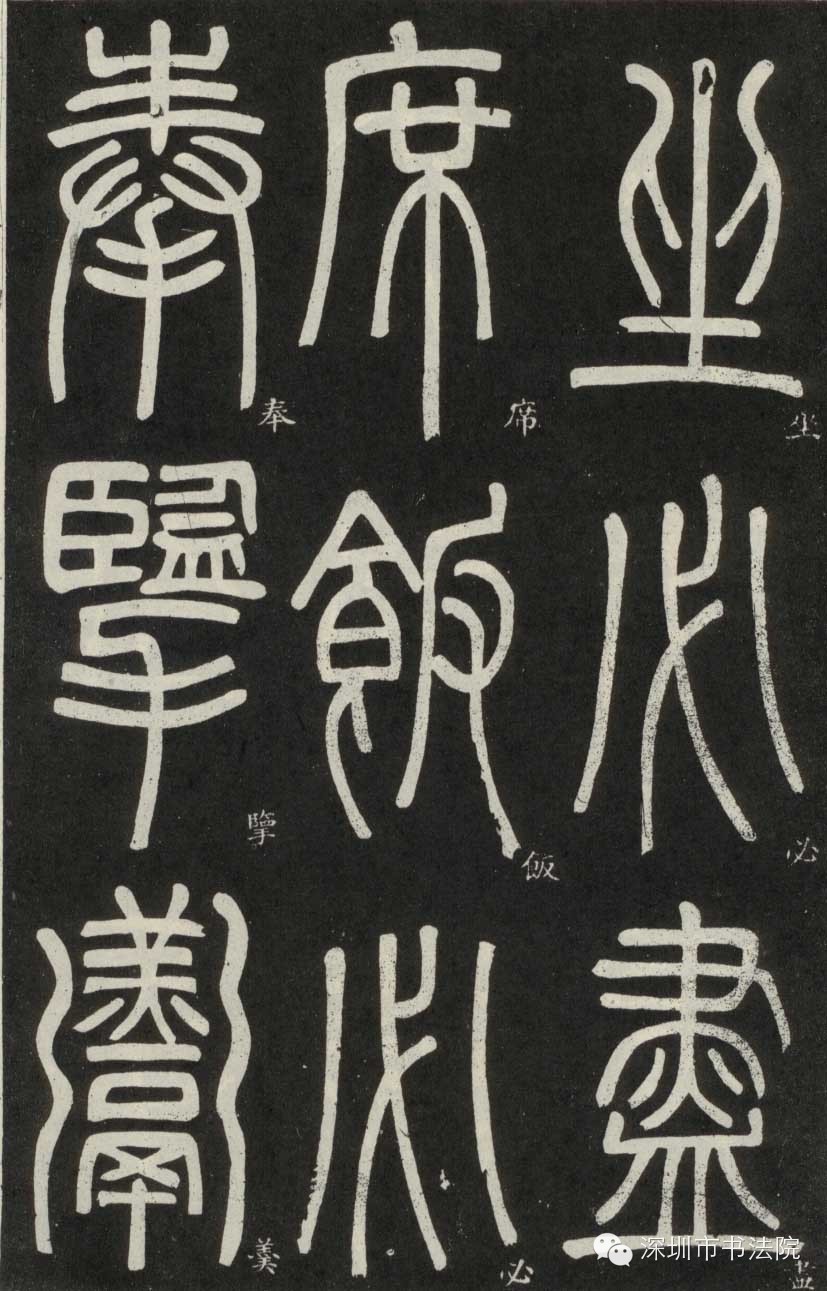 坐必盡
坐必盡
席飯必
席飯必
奉擥羹
奉擥羹
深圳市书法院